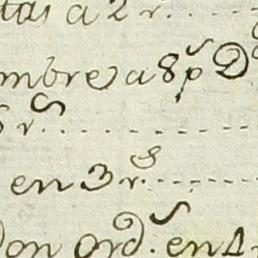 tas a 2 r.
mbre a 8 ps D
5 rs
en 3 rs
Don ord. s en 4